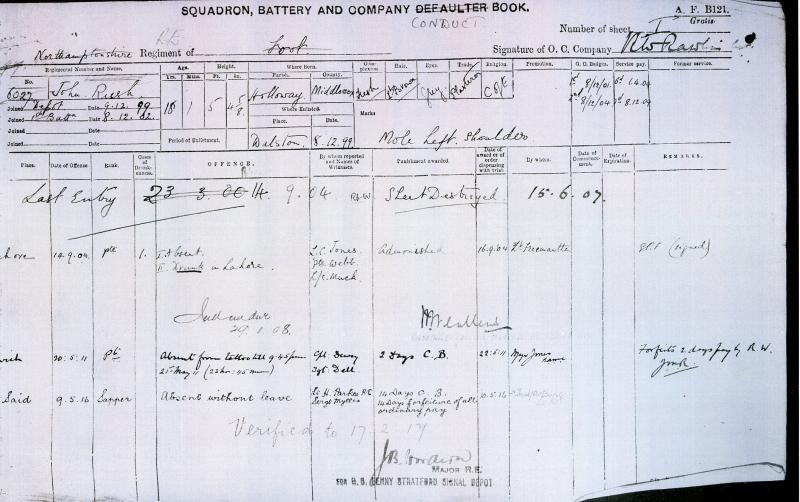 SQUADRON, BATTERY AND COMPANY DEFAULTER BOOK.
CONDUCT
A. F. B121.
Gratis.
Number of sheet I
R.E.
Northamptonshire Regiment of Foot
Signature of O. C. Company
Regimental Number and Name.
Age.
Height.
Where Born.
Com-plexion
Hair.
Eyes.
Trade.
Religion.
Promotion.
G. C. Badges.
Service pay.
Former service.
Yrs. Mns. Ft. In. Parish. County.
No.
6027 John Rush
18 1 5 4 5/8 Holloway Middlesex Fresh Lt Brown Grey Plasterer C of E
1st 8/12/01 6d 1.4.04
2nd 8/12/04 7d 8.12.09
Joined Depot Date 9.12.99
Joined 1st Battn Date 8.12.02.
Joined Date
Joined Date
Where Enlisted
Place. Date.
Marks
Period of Enlistment.
Dalston 8.12.99
Mole Left Shoulder
Place.
Date of Offence
Rank.
Cases of Drunk-enness.
OFFENCE.
By whom reported and Names of Witnesses.
Punishment awarded
Date of award or of order dispensing with trial.
By whom.
Date of Commence-ment.
Date of Expiration.
REMARKS.
Last Entry 23 3. 00 14 9. 04 Sheet Destroyed 15.6.07.
hore 14.9.04 Pte 1. I. Absent. L.C. Jones. Admonished 16.9.04 Lt Fremantle (signed)
II. Drunk in Lahore. Pte Webb.
L/c. Much
29.1.08.
20.5.11 Pte Absent from tattoo till 9.45pm Cpl. Dewey 2 Days C.B. 22.5.11 Major Jones Forfeits 2 days pay by R.W.
21st May 11 (23 hr: 45 min) Sgt. Dell
Said 9.5.16 Sapper Absent without leave Lt H. Parker R.E. 14 Days C.B. 10.5.16
14 Days forfeiture of all
ordinary pay
Verified to 17 2 17
MAJOR R.E.
FOR O.C. FENNY STRATFORD SIGNAL DEPOT